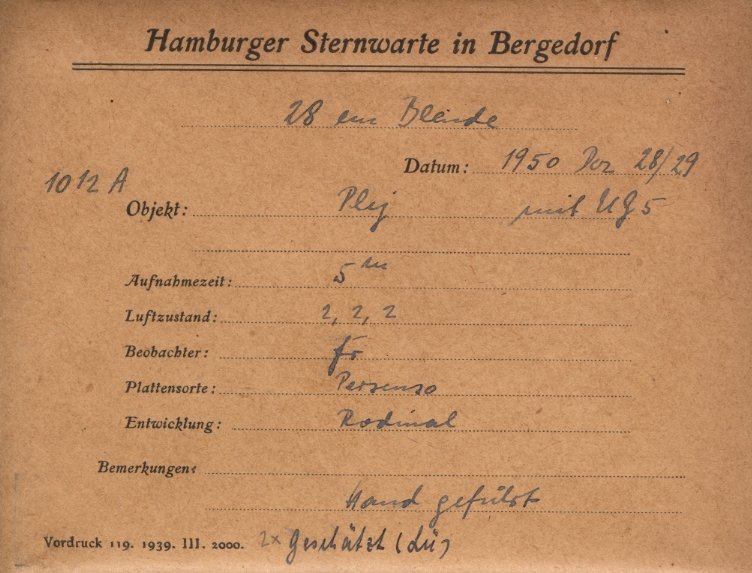 Hamburger Sternwarte in Bergedorf
28 cm Blende
Datum: 1950 Dez 28/29
1012 A
Objekt: Plej mit UG 5
Aufnahmezeit: 5 m
Luftzustand: 2, 2, 2
Beobachter: Fr
Plattensorte: Persenso
Entwicklung: Rodinal
Bemerkungen:
Hand geführt
Vordruck 119. 1939. III. 2000. 2x Geschätzt (Lü)